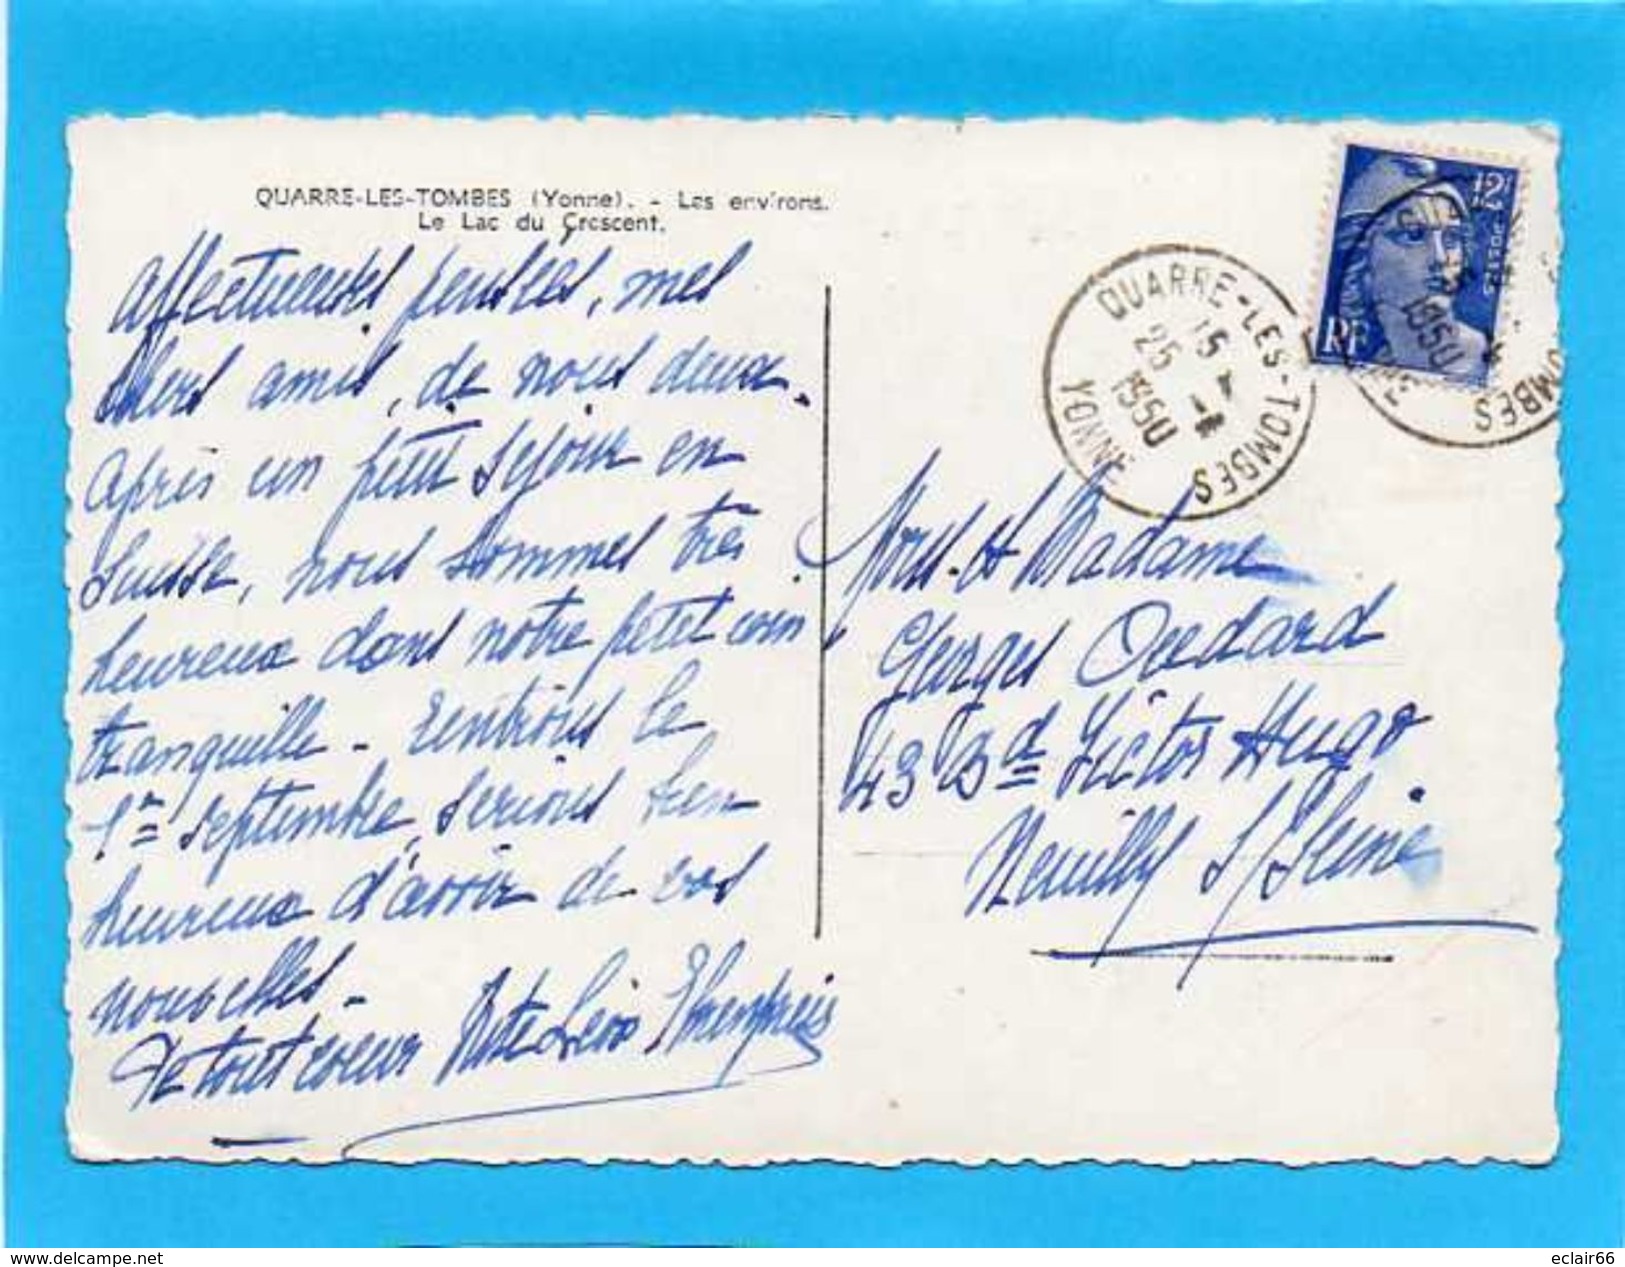 QUARRE-LES-TOMBES (Yonne). - Les environs.
Le Lac du Crescent.
Affectueuses pensées, mes
chers amis, de nous deux.
Après un petit séjour en
Suisse, nous sommes très
heureux dans notre petit coin
tranquille - Rentrons le
1er septembre, serions bien
heureux d'avoir de vos
nouvelles -
De tout coeur
QUARRE-LES-TOMBES
15
25
1950
YONNE
12F
RF
1950
TOMBES
Mons. et Madame
Georges Oudard
43 Bd Victor Hugo
Neuilly s/Seine
delcampe.net
eclair66